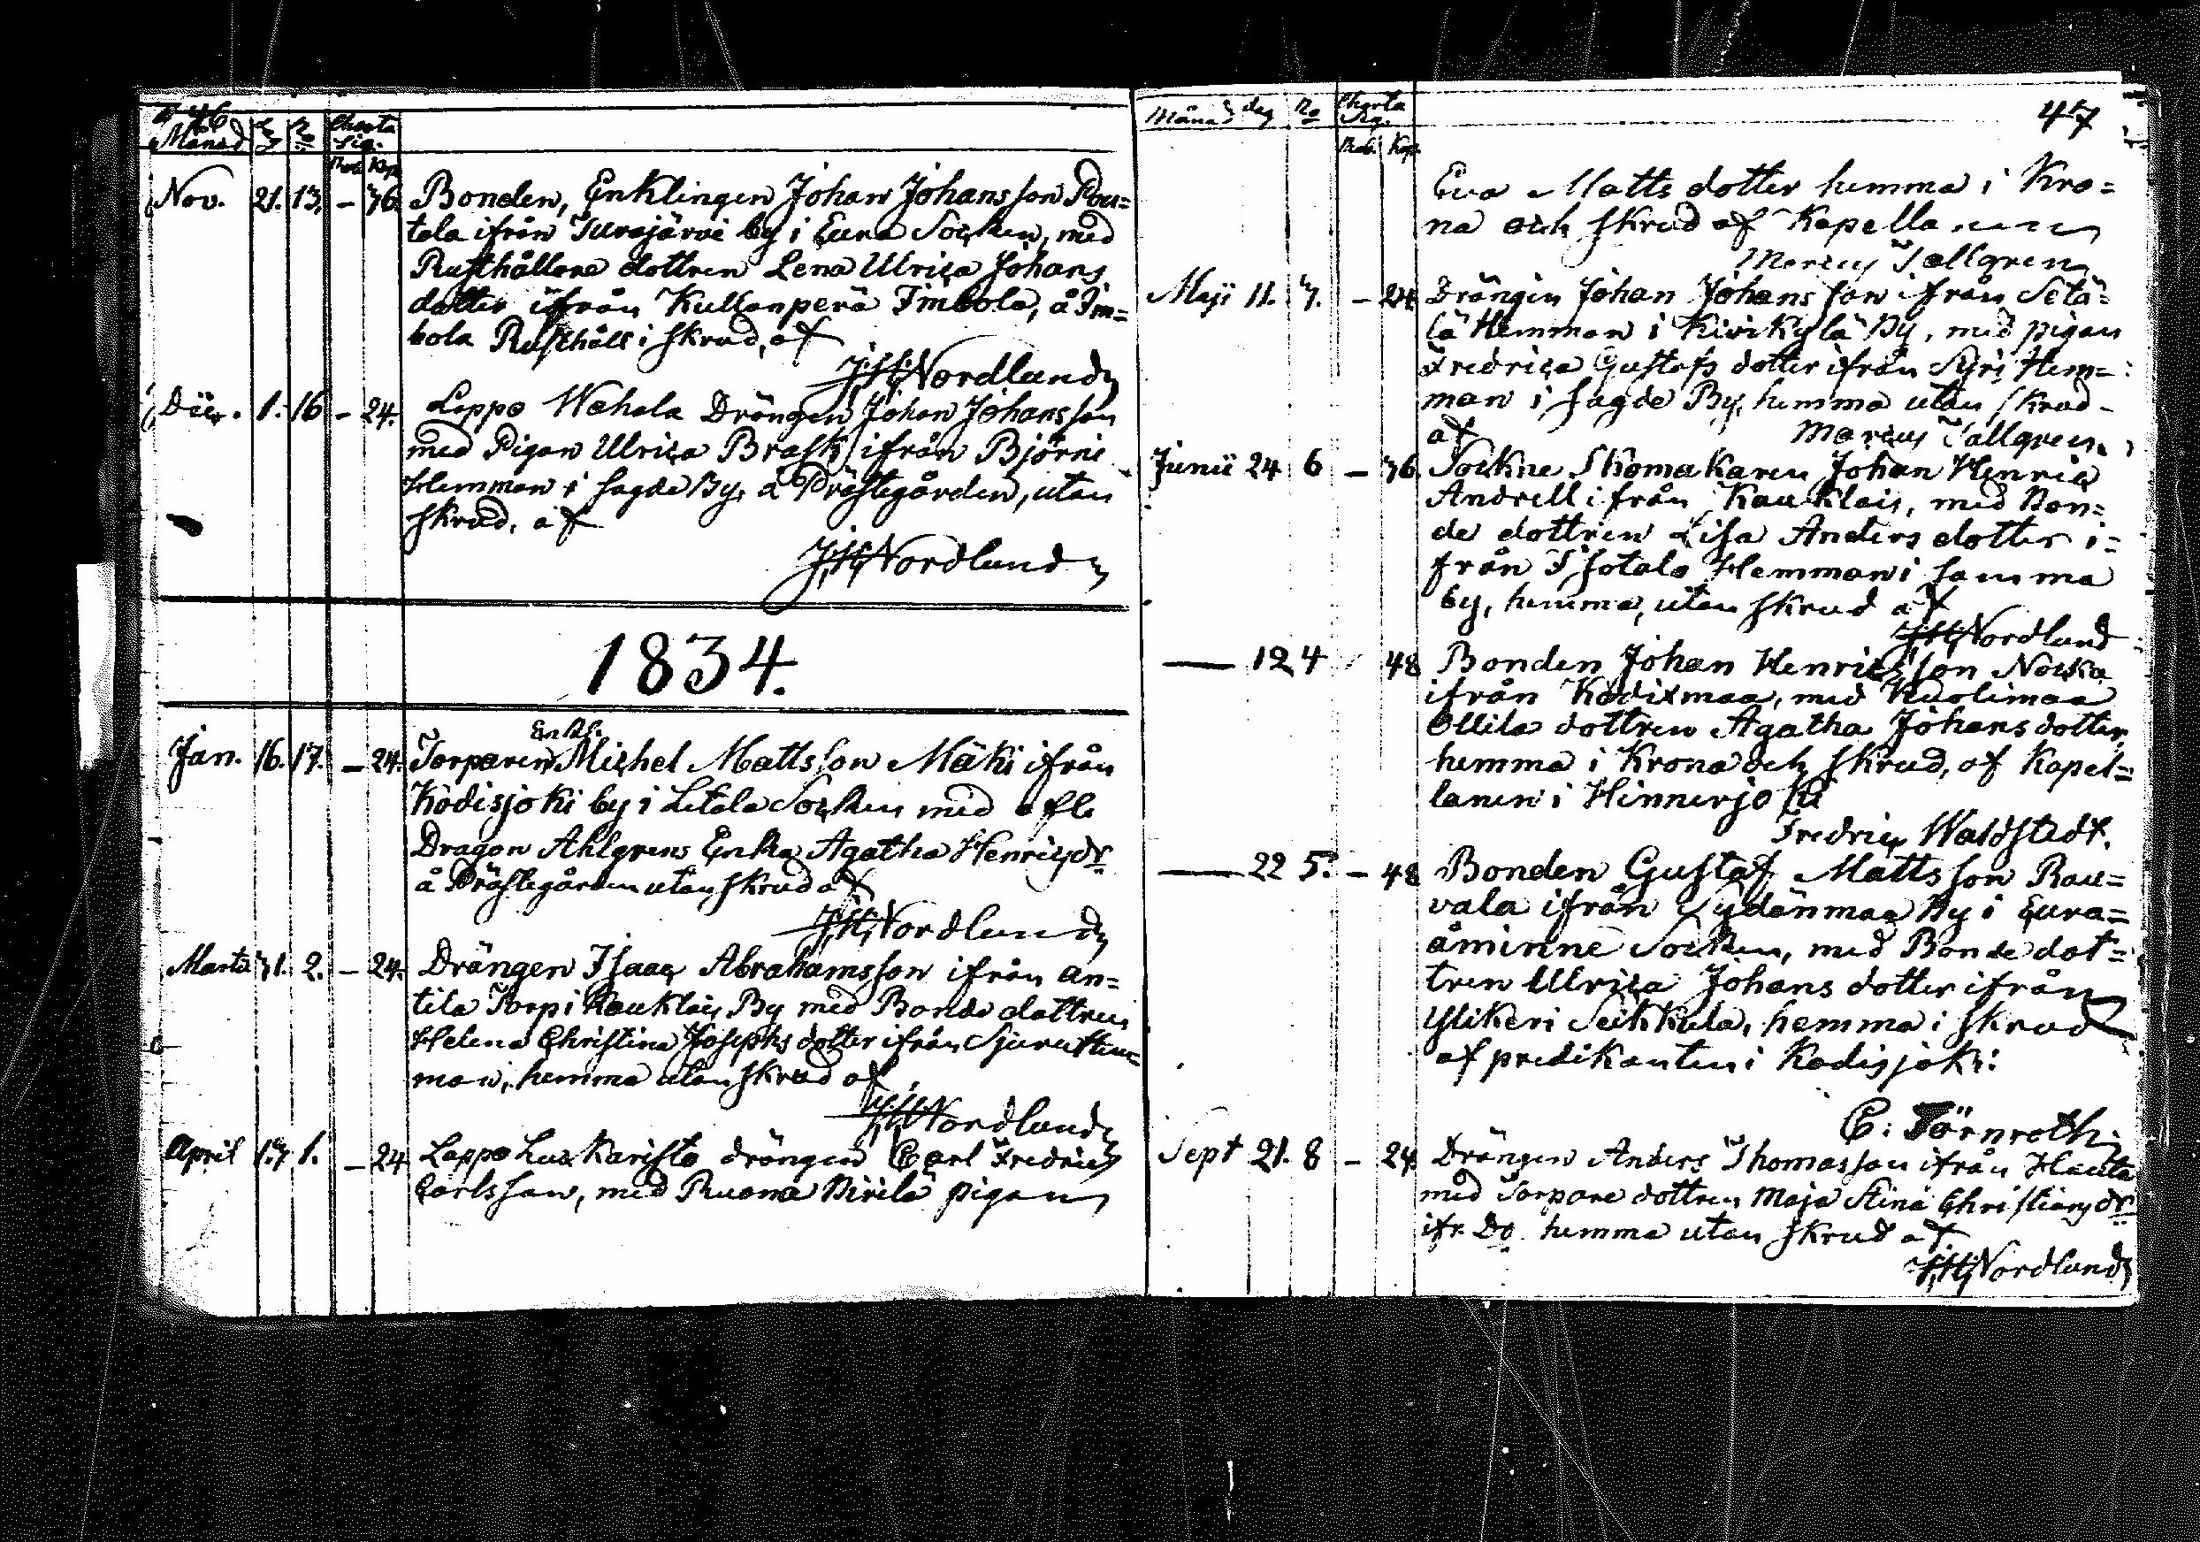 46
Månad dag No Charta Sig.
Rub. Kop.
Nov. 21. 13. - 76. Bonden, Enklingen Johan Johansson Pou=
tela ifrån Turajärvi by i Eura Socken, med
Rusthållare dottren Lena Ulrica Johans
dotter ifrån Kullanperä Timbola, å Tim=
bola Rusthåll i skrud, af
J:H:Nordlund
Dec. 1. 16 - 24. Loppo Wahala Drängen Johan Johansson
med Pigan Ulrica Brask ifrån Björni
Hemman i sagde By, å Prästegården, utan
skrud, af
J:H:Nordlund
1834.
Enkl.
Jan. 16. 17. - 24. Torparen Michel Mattsson Mäki ifrån
Kodisjoki by i Letala Socken med afl.
Dragon Ahlgrens Enka Agatha Henricsdr
å Prästegården utan skrud af
J:H:Nordlund
Martii 31. 2. - 24. Drängen Isaac Abrahamsson ifrån An=
tila Torp i Kauklais By med Bonde dottren
Helena Christina Josephs dotter ifrån Sjuru Hem=
man, hemma utan skrud af
J:H:Nordlund
April 17. 1. - 24 Lappo Luskaristo drängen Carl Fredric
Carlsson, med Ruona Pirilä pigan
47
Månad dag No Charta Sig.
Rub. Kop.
Eva Matts dotter hemma i Kro=
na och skrud af Kapellanen
Marcus Tallgren
Maji 11. 7. - 24. Drängen Johan Johansson ifrån Setä=
lä Hemman i Kivikylä By, med pigan
Fredrica Gustafs dotter ifrån Syri Hem=
man i sagde By, hemma utan skrud
af Marcus Tallgren.
Junii 24 6 - 76 Sockne Skomakaren Johan Henric
Andrell ifrån Kauklais, med Bon=
de dottren Lisa Anders dotter i=
från Isotalo Hemman i samma
by, hemma, utan skrud af
J:H:Nordlund
— 12 4 48 Bonden Johan Henricsson Nocka
ifrån Kodixmaa, med Kuolimaa
Ollila dottren Agatha Johans dotter,
hemma i Krona och skrud, af Kapel=
lanen i Hinnerjoki
Fredric Waldstedt.
— 22 5. - 48 Bonden Gustaf Mattsson Rau=
vala ifrån Sydänmaa By i Eura=
åminne Socken, med Bonde dot=
tren Ulrica Johans dotter ifrån
Ylikeri Seikkula, hemma i skrud
af predikanten i Kodisjoki:
C. Törnroth
Sept 21. 8 - 24 Drängen Anders Thomasson ifrån Hauta
med Torpare dottren Maja Stina Christiansdr
ifr. Do hemma utan skrud af
J:H:Nordlund